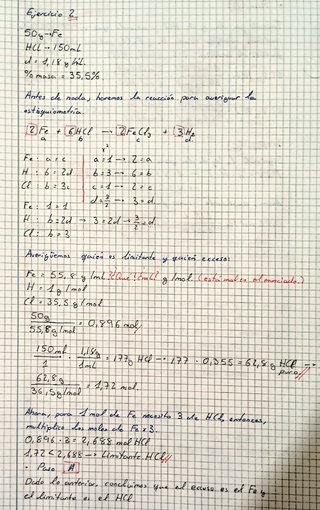 Ejercicio 2
50g → Fe
HCl → 150ml
d = 1,18 g/ml.
% masa = 35,5%
Antes de nada, haremos la reacción para averiguar la
estequiometría.
2 Fe + 6 HCl → 2 FeCl3 + 3 H2
a b c d
x2
Fe: a = c a = 1 → 2 = a
H : b = 2d b = 3 → 6 = b
Cl : b = 3c c = 1 → 2 = c
Fe: 1 = 1 d = 3/2 → 3 = d.
H : b = 2d → 3 = 2d → 3/2 = d.
Cl: b = 3
Averigüemos quién es limitante y quién exceso:
Fe = 55,8 g/ml ?¿Qué? ¿ml? g/mol. (está mal en el enunciado.)
H = 1 g/mol
Cl = 35,5 g/mol
50g / 55,8 g/mol = 0,896 mol
150ml / 1 · 1,18g / 1ml = 177g HCl → 177 · 0,355 = 62,8 g HCl puro
62,8g / 36,5 g/mol = 1,72 mol.
Ahora, para 1 mol de Fe necesito 3 de HCl, entonces,
multiplico los moles de Fe x 3.
0,896 · 3 = 2,688 mol HCl
1,72 < 2,688 → Limitante: HCl
· Paso A
Dado lo anterior, concluimos que el exceso es el Fe y
el limitante es el HCl